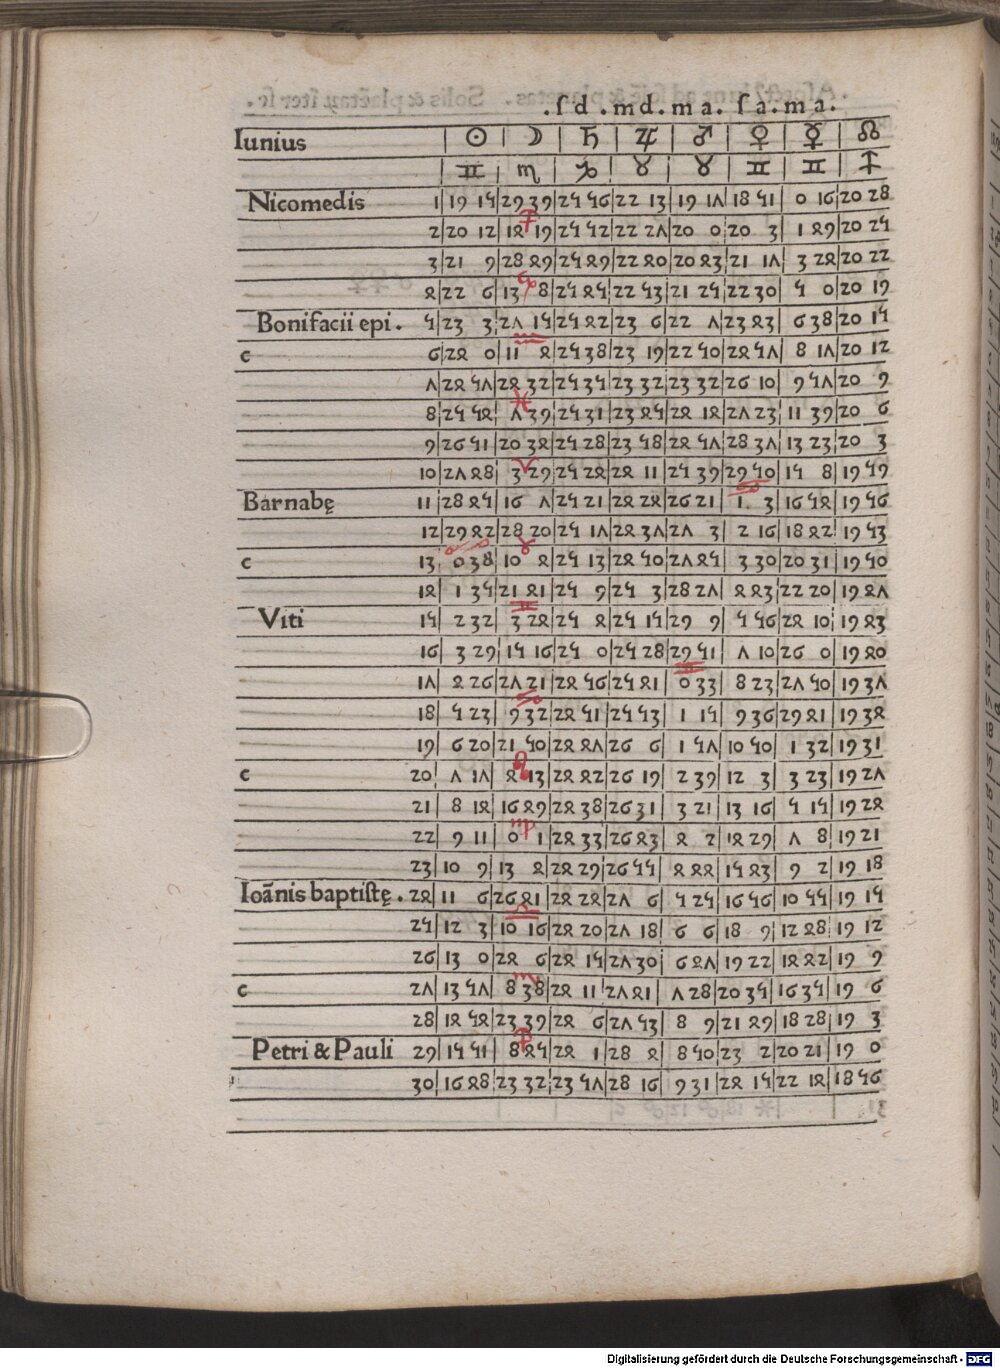 . ſ d . m d . m a . ſ a . m a .
Iunius ☉ ☽ ♄ ♃ ♂ ♀ ☿ ☊
♊ ♏ ♑ ♉ ♉ ♊ ♊ ♐
Nicomedis 1 19 15 29 39 25 56 22 13 19 17 18 51 0 16 20 28
♐
2 20 12 14 19 25 52 22 27 20 0 20 3 1 49 20 25
3 21 9 28 49 25 49 22 40 20 43 21 17 3 24 20 22
♑
4 22 6 13 8 25 45 22 53 21 25 22 30 5 0 20 19
Bonifacii epi . 5 23 3 27 15 25 42 23 6 22 7 23 43 6 38 20 15
♒
c 6 24 0 11 4 25 38 23 19 22 50 24 57 8 17 20 12
7 24 57 24 32 25 35 23 32 23 32 26 10 9 57 20 9
♓
8 25 54 7 39 25 31 23 45 24 14 27 23 11 39 20 6
9 26 51 20 34 25 28 23 58 24 57 28 37 13 23 20 3
♈
10 27 48 3 29 25 24 24 11 25 39 29 50 15 8 19 59
♋
Barnabę 11 28 45 16 7 25 21 24 24 26 21 1 3 16 54 19 56
12 29 42 28 20 25 17 24 37 27 3 2 16 18 42 19 53
♋ ♉
c 13 0 38 10 4 25 13 24 50 27 45 3 30 20 31 19 50
14 1 35 21 41 25 9 25 3 28 27 4 43 22 20 19 47
♊
Viti 15 2 32 3 24 25 4 25 15 29 9 5 56 24 10 19 43
16 3 29 15 16 25 0 25 28 29 51 7 10 26 0 19 40
♊
17 4 26 27 21 24 56 25 41 0 33 8 23 27 50 19 37
♋
18 5 23 9 32 24 51 25 53 1 15 9 36 29 41 19 34
19 6 20 21 50 24 47 26 6 1 57 10 50 1 32 19 31
♌
c 20 7 17 4 13 24 42 26 19 2 39 12 3 3 23 19 27
21 8 14 16 49 24 38 26 31 3 21 13 16 5 15 19 24
♍
22 9 11 0 1 24 33 26 43 4 2 14 29 7 8 19 21
23 10 9 13 4 24 29 26 55 4 44 15 43 9 2 19 18
Ioānis baptiſtę . 24 11 6 26 41 24 24 27 6 5 25 16 56 10 55 19 15
♎
25 12 3 10 16 24 20 27 18 6 6 18 9 12 48 19 12
26 13 0 24 6 24 15 27 30 6 47 19 22 14 42 19 9
♏
c 27 13 57 8 38 24 11 27 41 7 28 20 35 16 35 19 6
28 14 54 23 39 24 6 27 53 8 9 21 49 18 28 19 3
♐
Petri & Pauli 29 15 51 8 45 24 1 28 4 8 50 23 2 20 21 19 0
30 16 48 23 32 23 57 28 16 9 31 24 15 22 14 18 56
Digitalisierung gefördert durch die Deutsche Forschungsgemeinschaft - DFG